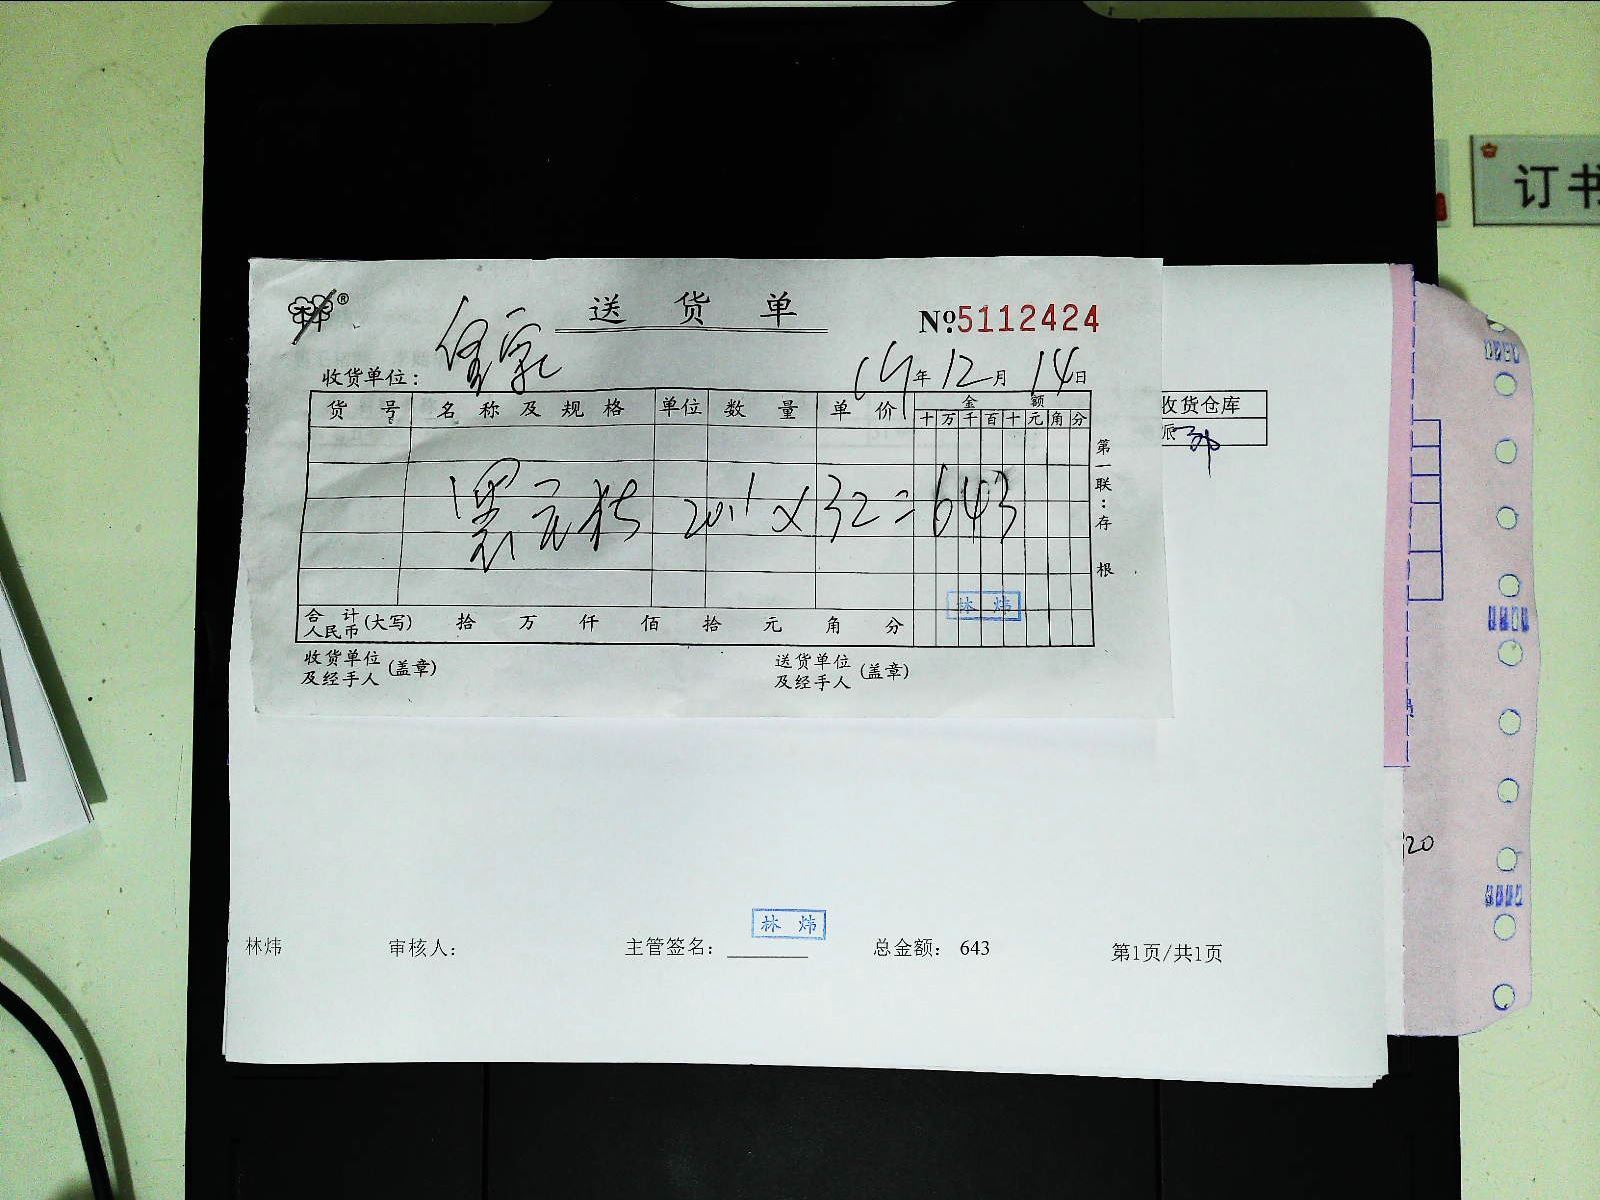 订书
送货单
®
№5112424
收货单位：
19年12月14日
货号 名称及规格 单位 数量 单价 金额
十万千百十元角分
黑元枝 20.1 × 32 = 643
林炜
合计人民币(大写) 拾 万 仟 佰 拾 元 角 分
收货单位及经手人(盖章)
送货单位及经手人(盖章)
第一联：存根
收货仓库
派
20
林炜
林炜 审核人： 主管签名： 总金额： 643 第1页/共1页